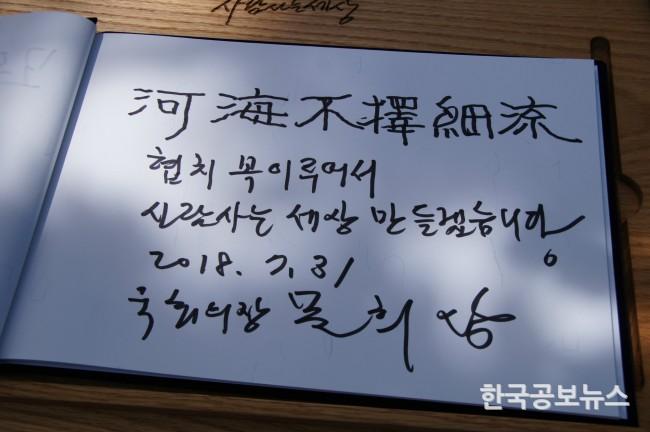 사람사는세상
河海不擇細流
협치 꼭 이루어서
사람사는 세상 만들겠습니다.
2018. 7. 31
국회의장 문희상
한국공보뉴스